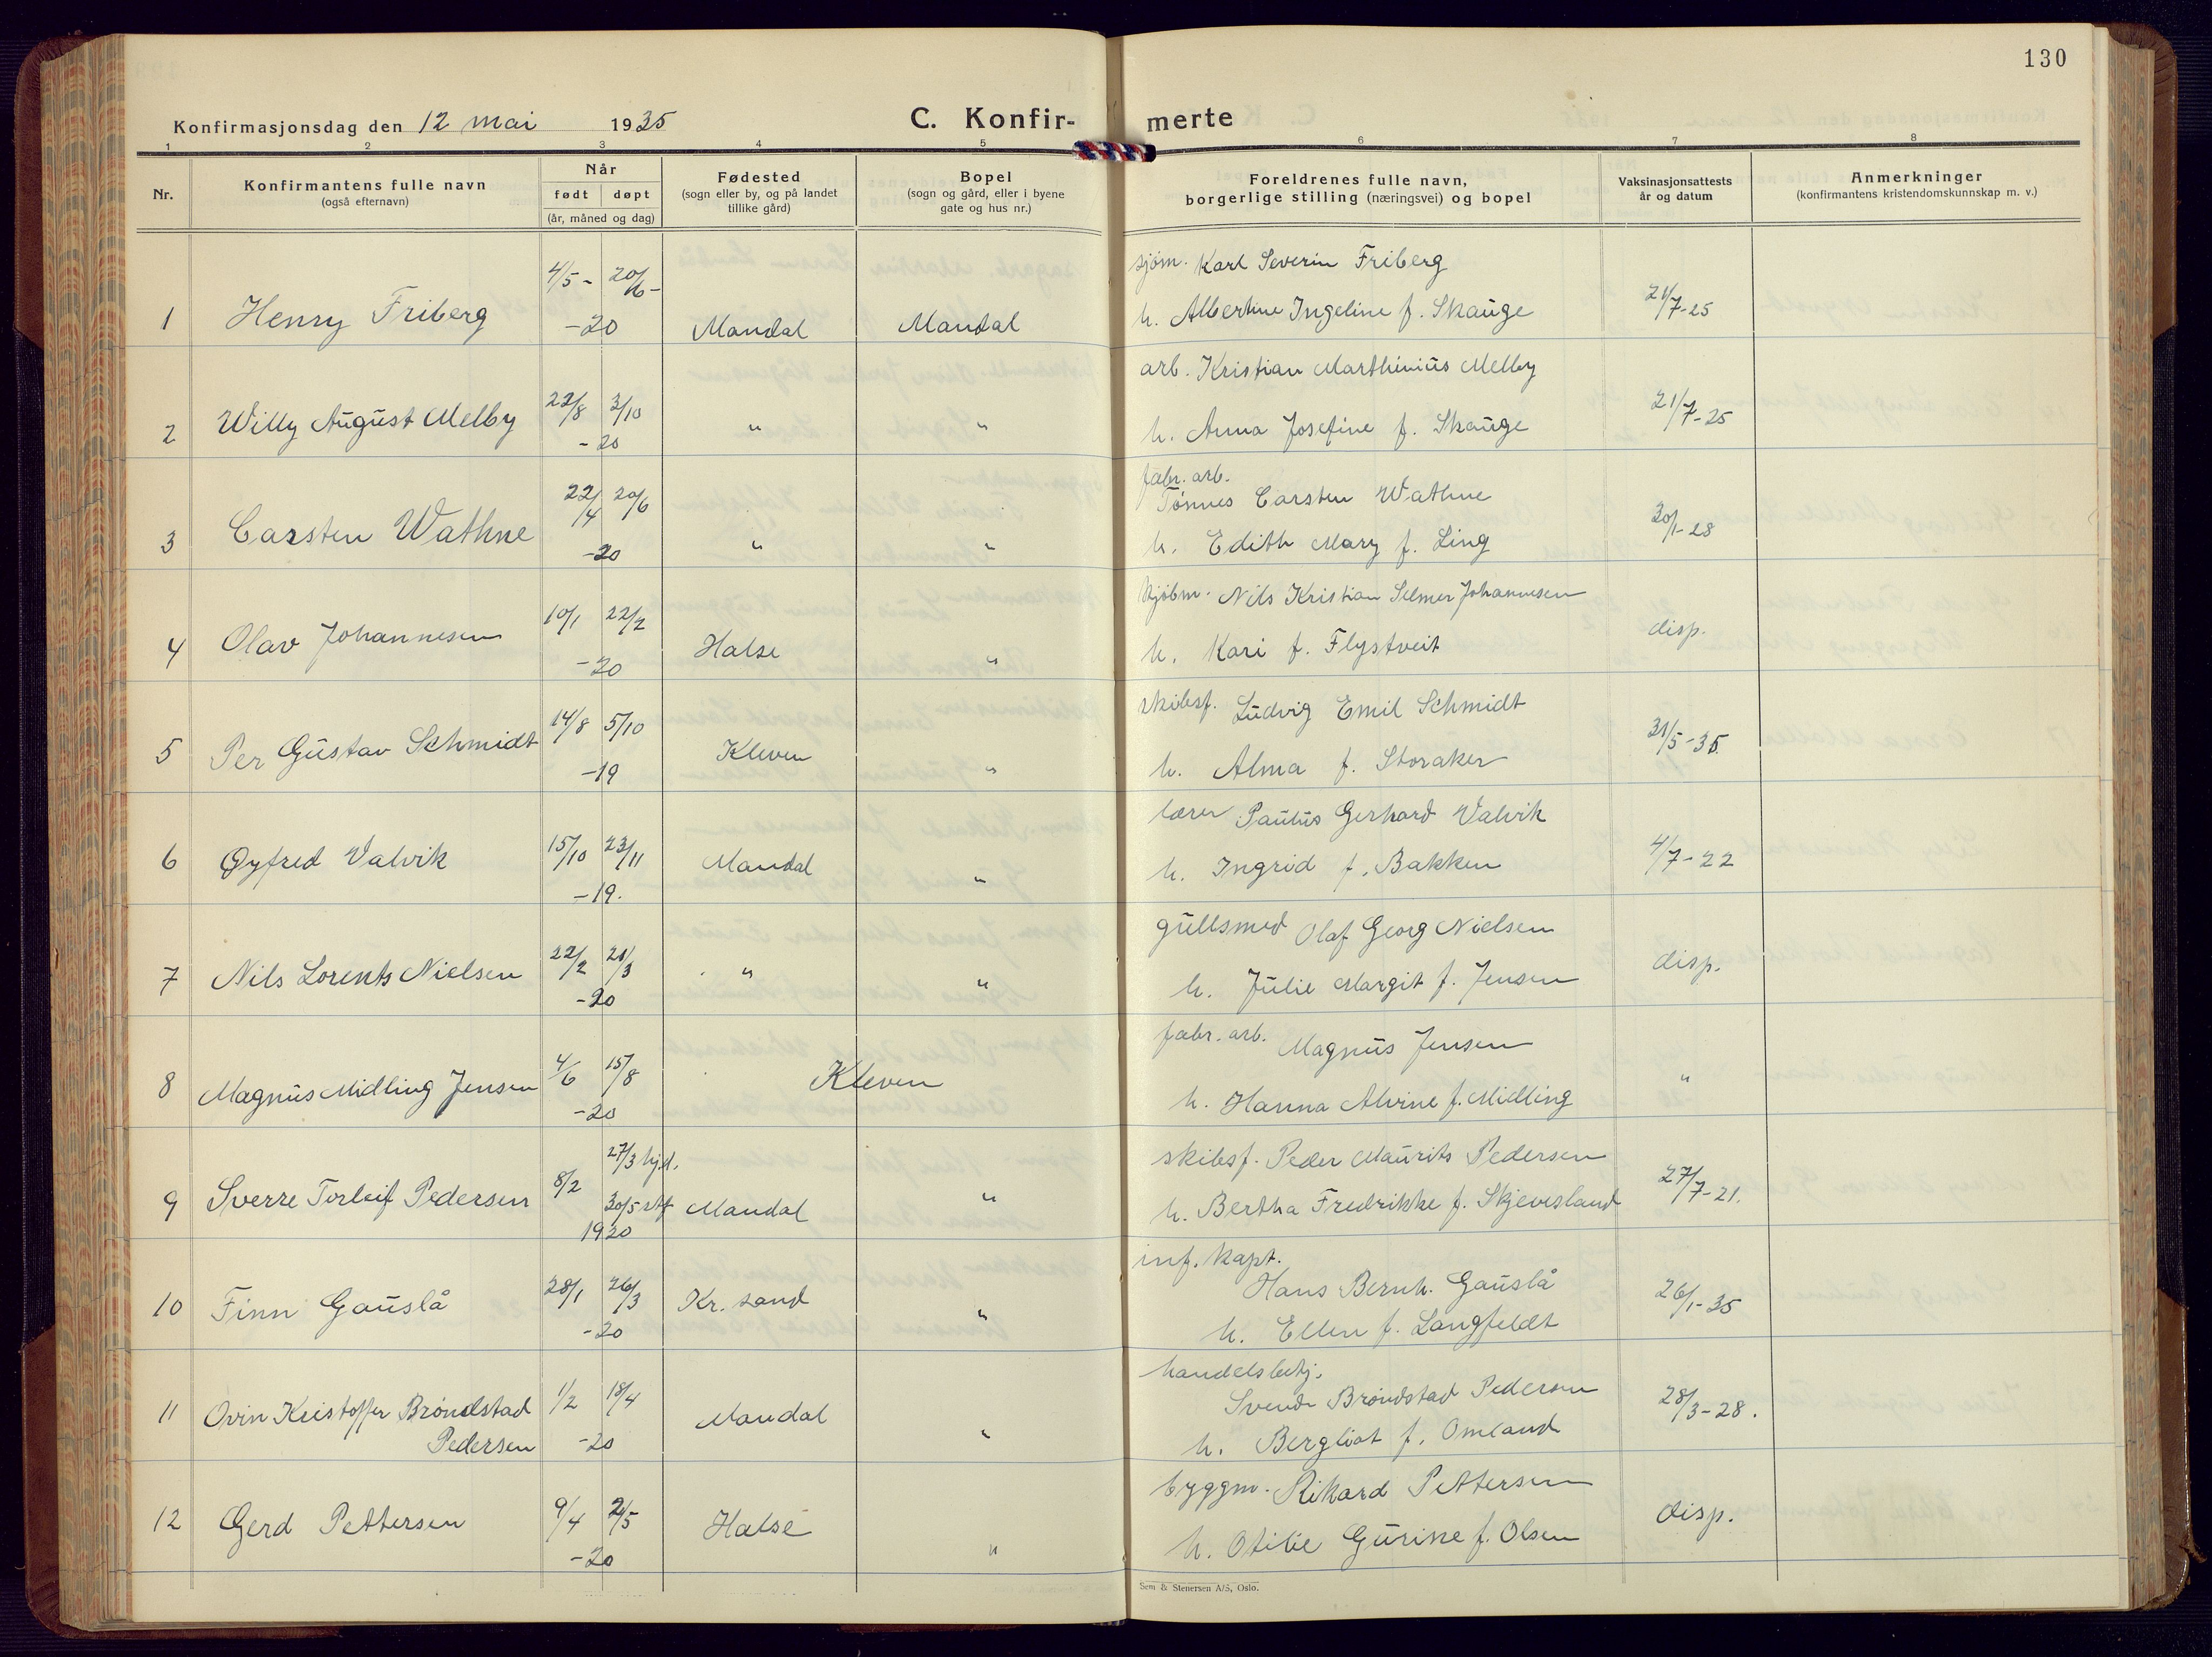 130
Konfirmasjonsdag den 12 mai 1935
C. Konfir- merte
1 2 3 4 5 6 7 8
Nr.
Konfirmantens fulle navn
(også efternavn)
Når
født døpt
(år, måned og dag)
Fødested
(sogn eller by, og på landet
tillike gård)
Bopel
(sogn og gård, eller i byene
gate og hus nr.)
Foreldrenes fulle navn,
borgerlige stilling (næringsvei) og bopel
Vaksinasjonsattests
år og datum
Anmerkninger
(konfirmantens kristendomskunnskap m. v.)
sjøm. Karl Severin Friberg
4/5 - 20/6 -
1 Henry Friberg -20 Mandal Mandal h. Albertine Ingeline f. Skauge 21/7-25
arb. Kristian Marthinius Melby
22/8 3/10
2 Willy August Melby -20 " " h. Anna Josefine f. Skauge 21/7-25
fabr. arb.
Tønnes Carsten Wathne
22/4 20/6
3 Carsten Wathne -20 " " h. Edith Mary f. Ling 30/1-28
kjøbm. Nils Kristian Selmer Johannesen
10/1 22/2
4 Olav Johannesen -20 Halse " h. Kari f. Flystveit disp.
skibsf. Ludvig Emil Schmidt
14/8 5/10
5 Per Gustav Schmidt -19 Kleven " h. Alma f. Storaker 31/5-35
lærer Paulus Gerhard Valvik
15/10 23/11
6 Øyfred Valvik -19. Mandal " h. Ingrid f. Bakken 4/7-22
gullsmed Olaf Georg Nielsen
22/2 21/3
7 Nils Lorents Nielsen -20 " " h. Julie Margit f. Jensen disp.
fabr. arb. Magnus Jensen
4/6 15/8
8 Magnus Midling Jensen -20 Kleven h. Hanna Alvine f. Midling "
skibsf. Peder Maurits Pedersen
27/3 hjd.
8/2 30/5 stf
9 Sverre Torleif Pedersen 1920 Mandal " h. Bertha Fredrikke f. Skjevesland 27/7-21.
inf. kapt.
Hans Bernh. Gauslå
28/1 26/3
10 Finn Gauslå -20 Kr. sand " h. Ellen f. Langfeldt 26/1-35
handelsbetj.
Svend Brøndstad Pedersen
1/2 18/4
11 Ovin Kristoffer Brøndstad
Pedersen -20 Mandal " h. Bergliot f. Omland 28/3-28.
byggm. Rikard Pettersen
9/4 2/5
12 Gerd Pettersen -20 Halse " h. Otilie Gurine f. Olsen disp.
Sem & Stenersen A/S, Oslo.